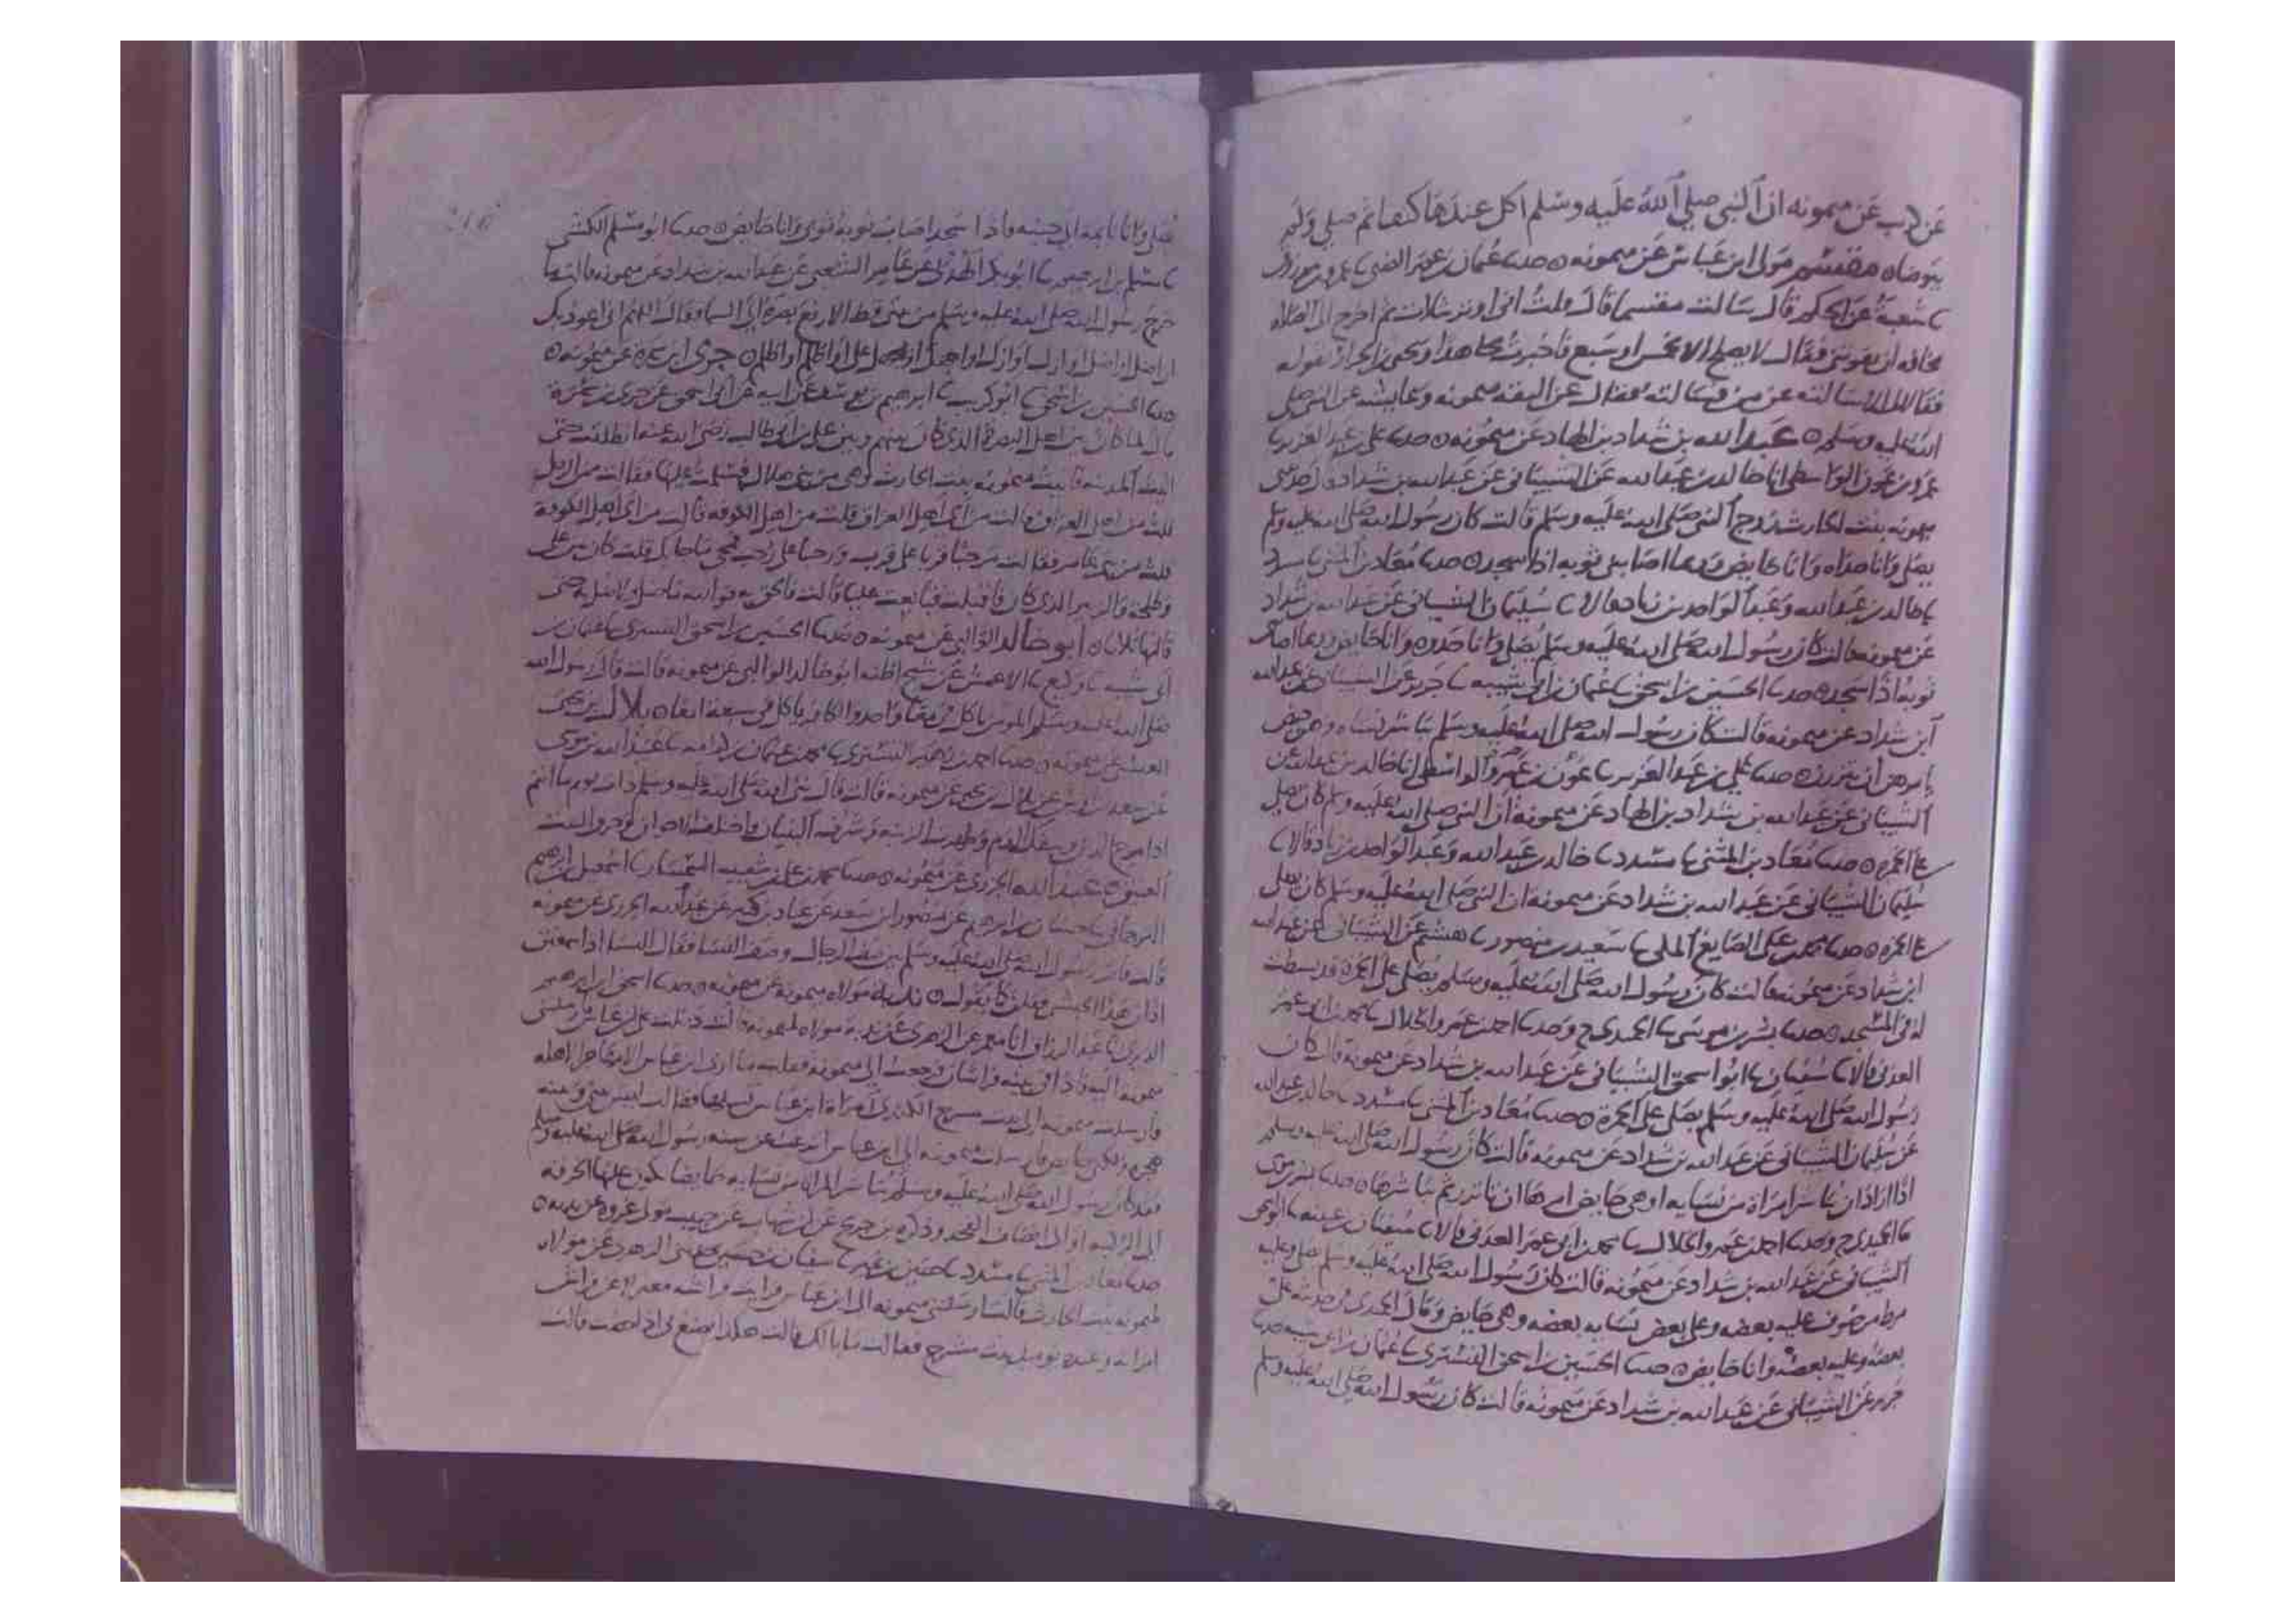 عن كريب عن ميمونه ان النبي صلى الله عليه وسلم اكل عندها كتفا ثم صلى ولم
يتوضاه مقسم مولى ابن عباس عن ميمونه ه حدثنا عثمان بن عمر الضبي عمرو بن مرزوق
شعبة عن الحكم قال سالت مقسما قال قلت اني اوتر بثلاث ثم اخرج الى الصلاه
مخافه ان تفوتني فقال لا يصلح الا بخمس او سبع فاخبرت مجاهدا ويحيى بن الجزار بقوله
فقالا لي سله عن من فسالته فقال عن الثقه ميمونه وعايشه عن النبي صلى
الله عليه وسلم ه عبد الله بن شداد بن الهاد عن ميمونه ه حدثنا علي بن عبد العزيز
عمرو بن عون الواسطي انا خالد بن عبد الله عن الشيباني عن عبد الله بن شداد قال حدثتني
ميمونه بنت الحارث زوج النبي صلى الله عليه وسلم قالت كان رسول الله صلى الله عليه وسلم
يصلي وانا حذاه وانا حايض وربما اصابني ثوبه اذا سجد ه حدثنا معاذ بن المثنى مسدد
خالد بن عبد الله وعبد الواحد بن زياد قالا سليمان الشيباني عن عبد الله بن شداد
عن ميمونه قالت كان رسول الله صلى الله عليه وسلم يصلي وانا حذوه وانا حايض ربما اصابني
ثوبه اذا سجد ه حدثنا الحسين بن اسحق عثمان بن ابي شيبه جرير عن الشيباني عن عبد الله
ابن شداد عن ميمونه قالت كان رسول الله صلى الله عليه وسلم يباشر نساه وهن حيض
يامرهن ان يتزرن ه حدثنا علي بن عبد العزيز عون بن عمرو الواسطي انا خالد بن عبد الله عن
الشيباني عن عبد الله بن شداد بن الهاد عن ميمونه ان النبي صلى الله عليه وسلم كان يصلي
على الخمره ه حدثنا معاذ بن المثنى مسدد خالد بن عبد الله وعبد الواحد بن زياد قالا
سليمان الشيباني عن عبد الله بن شداد عن ميمونه ان النبي صلى الله عليه وسلم كان يصلي
على الخمره ه حدثنا محمد بن علي الصايغ المكي سعيد بن منصور هشيم عن الشيباني عن عبد الله
ابن شداد عن ميمونه قالت كان رسول الله صلى الله عليه وسلم يصلي على الخمرة قد بسطت
له في المسجد ه حدثنا بشر بن موسى الحميدي ح وحدثنا احمد بن عمرو الخلال محمد بن ابي عمر
العدني قالا سفيان ابو اسحق الشيباني عن عبد الله بن شداد عن ميمونة قالت كان
رسول الله صلى الله عليه وسلم يصلي على الخمرة ه حدثنا معاذ بن المثنى مسدد خالد بن عبد الله
عن سليمان الشيباني عن عبد الله بن شداد عن ميمونه قالت كان رسول الله صلى الله عليه وسلم
اذا اراد ان يباشر امراة من نسايه وهي حايض امرها ان تاتزر ثم يباشرها ه حدثنا بشر بن موسى
الحميدي ح وحدثنا احمد بن عمرو الخلال محمد بن ابي عمر العدني قالا سفيان بن عيينه ابو اسحق
الشيباني عن عبد الله بن شداد عن ميمونه قالت كان رسول الله صلى الله عليه وسلم صلى وعليه
مرط من صوف عليه بعضه وعلى بعض نسايه بعضه وهي حايض وقال الحميدي في حديثه علي
بعضه وعليه بعضه وانا حايض ه حدثنا الحسين بن اسحق التستري عثمان بن ابي شيبه
جرير عن الشيباني عن عبد الله بن شداد عن ميمونه قالت كان رسول الله صلى الله عليه وسلم
يصلي وانا نايمه الى جنبه فاذا سجد اصابني ثوبه وانا حايض ه حدثنا ابو مسلم الكشي
مسلم بن ابرهيم ابو بكر الهذلي عن عامر الشعبي عن عبد الله بن شداد عن ميمونه قالت ما
خرج رسول الله صلى الله عليه وسلم من بيتي قط الا رفع بصره الى السما وقال اللهم اني اعوذ بك
ان اضل او اضل او ازل او ازل او اجهل او يجهل علي او اظلم او اظلم ه جري ابن سمرة عن ميمونه ه
حدثنا الحسين بن اسحق ابو كريب ابرهيم بن يوسف عن ابيه عن ابي اسحق عن جري بن سمرة
قال لما كان من اهل البصرة الذي كان بينهم وبين علي بن ابي طالب رضي الله عنه انطلقت حتى
اتيت المدينه فاتيت ميمونه بنت الحارث وهي من بني هلال فسلمت عليها فقالت من الرجل
قلت من اهل العراق قالت من اي اهل العراق قلت من اهل الكوفه قالت من اي اهل الكوفة
قلت من بني عامر فقالت مرحبا قربا على قرب ورحبا على رحب فمجي ما جا بك قلت كان بين علي
وطلحة والزبير الذي كان فاقبلت فبايعت عليا قالت فالحق به فوالله ما ضل ولا ضل به حتى
قالتها ثلاثا ه ابو خالد الوالبي عن ميمونه ه حدثنا الحسين بن اسحق التستري عثمان بن
ابي شيبه وكيع الاعمش عن شيخ اظنه ابو خالد الوالبي عن ميمونه قالت قال رسول الله
صلى الله عليه وسلم المومن ياكل في معا واحد والكافر ياكل في سبعه امعا ه بلال بن يحيى
العبسي عن ميمونه ه حدثنا احمد بن زهير التستري محمد بن عثمان بن كرامه عبيد الله بن موسى
عن سعد بن اوس عن بلال بن يحيى عن ميمونه قالت قال نبي الله صلى الله عليه وسلم ذات يوم ما انتم
اذا مرج الدين وسفك الدم وظهرت الزينه وشرف البنيان واختلف الاخوان وحرق البيت
العتيق ه عبد الله الجزري عن ميمونه ه حدثنا محمد بن علي بن شعيب السمسار اسمعيل بن ابرهيم
الترجماني حسان بن ابرهيم عن منصور بن سعد عن عباد بن كثير عن عبد الله الجزري عن ميمونه
قالت قام رسول الله صلى الله عليه وسلم بين صف الرجال وصف النسا فقال للنسا اذا سمعتن
اذان هذا الحبشي فقلن كما يقول ه ندبه مولاه ميمونة عن ميمونه ه حدثنا اسحق بن ابرهيم
الدبري عبد الرزاق انا معمر عن الزهري عن ندبه مولاه لميمونه قالت دخلت على ابن عباس وارسلتني
ميمونه اليه فاذا في بيته فراشان فرجعت الى ميمونه فقلت ما ارى ابن عباس الا مهاجرا اهله
فارسلت ميمونه الى بنت مسرج الكندي امراة ابن عباس تسالها فقالت ليس بيني وبينه
هجر ولكني حايض فارسلت ميمونه الى ابن عباس اترغب عن سنه رسول الله صلى الله عليه وسلم
فقد كان رسول الله صلى الله عليه وسلم يباشر المراة من نسايه حايضا يكون عليها الخرقه
الى الركبه او الى انصاف الفخذ وذكره بن جريج عن ابن شهاب عن حبيب مولى عروه عن ندبه ه
حدثنا معاذ بن المثنى مسدد حصين بن نمير سفيان بن حسين حدثني الزهري عن مولاه
لميمونه بنت الحارث قالت ارسلتني ميمونه الى ابن عباس فرايت فراشه معتزلا عن فراش
امراته وعنده يوميذ بنت مسرج فقالت ما بالك قالت هكذا يصنع بي اذا حضت قالت